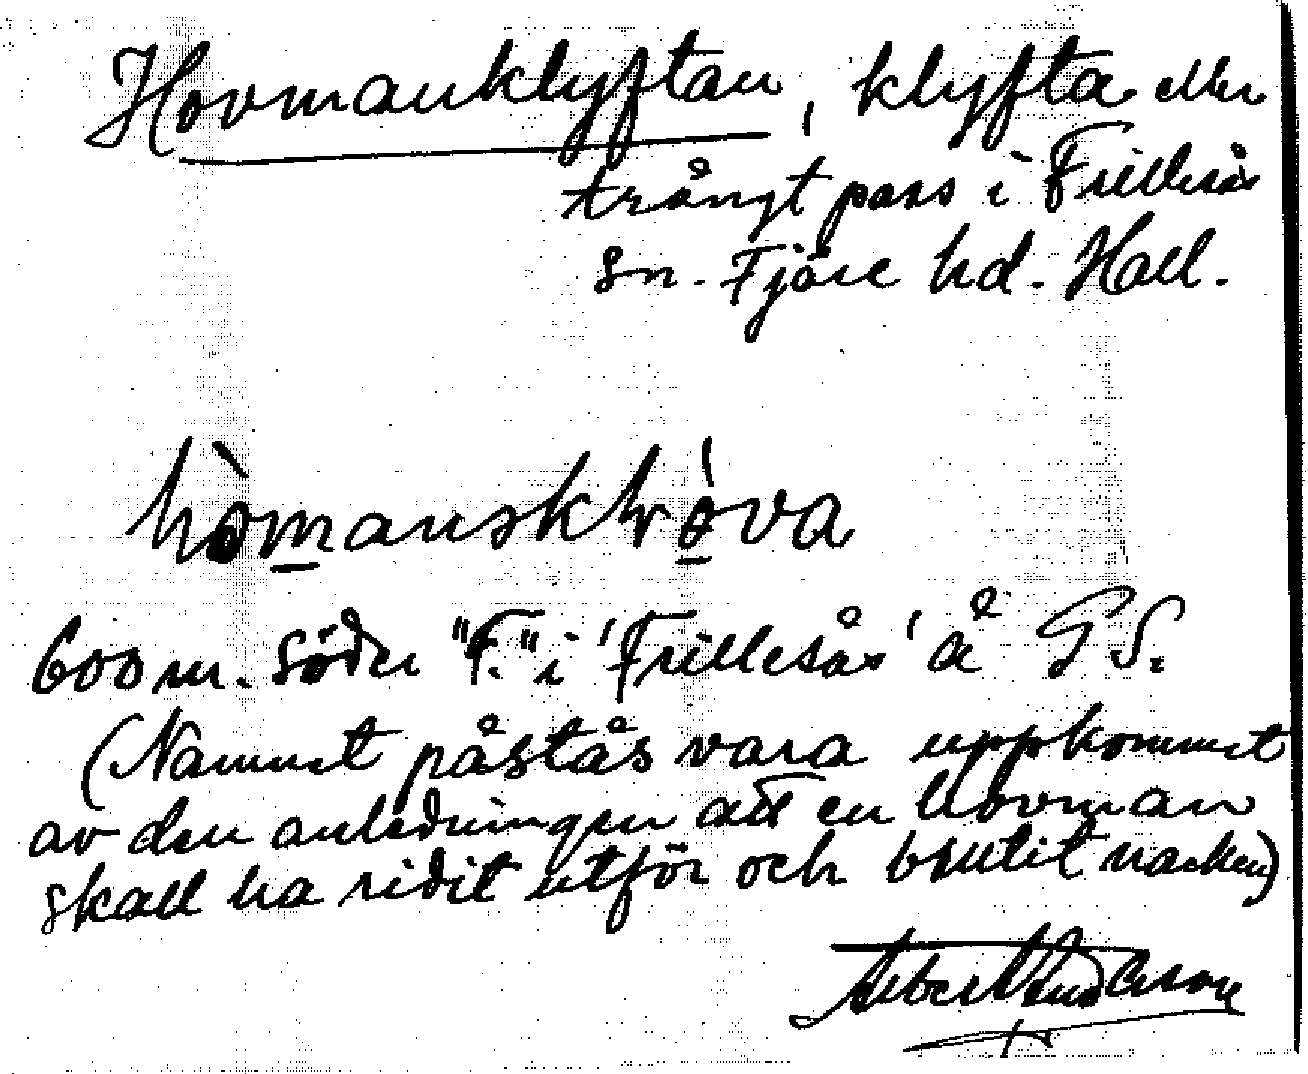 Hovmanklyftan, klyfta eller
trångt pass i Frillesås
sn. Fjäre hd. Hall.
600 m. söder "F." i 'Frillesås' å GS.
(Namnet påstås vara uppkommet
av den anledningen att en hovman
skall ha ridit utför och brutit nacken)
Albert Anderson